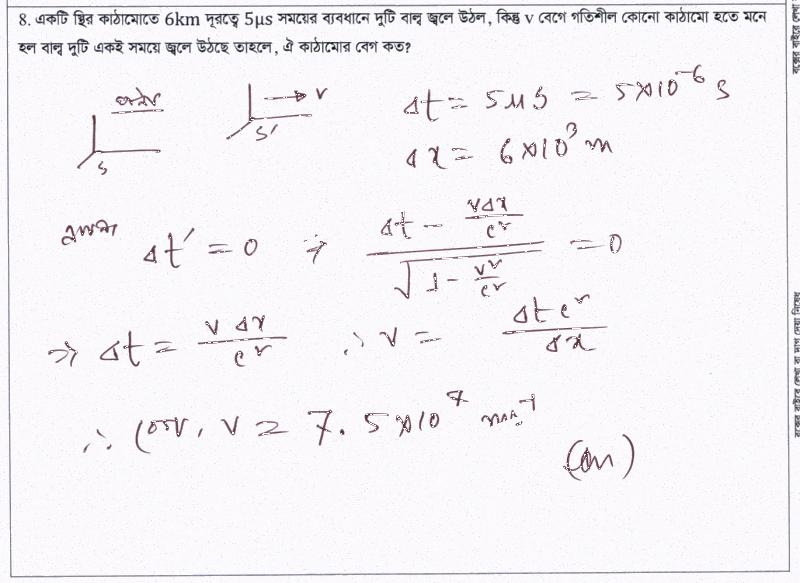 8. একটি স্থির কাঠামোতে 6km দূরত্বে 5μs সময়ের ব্যবধানে দুটি বাল্ব জ্বলে উঠল, কিন্তু v বেগে গতিশীল কোনো কাঠামো হতে মনে
হল বাল্ব দুটি একই সময়ে জ্বলে উঠছে তাহলে, ঐ কাঠামোর বেগ কত?
S
S' → v
Δt = 5μs = 5×10⁻⁶ s
Δx = 6×10³ m
Δt' = 0 ⇒ (Δt - vΔx/c²) / √(1 - v²/c²) = 0
⇒ Δt = vΔx/c² ∴ v = Δt c²/Δx
∴ বেগ, v = 7.5×10⁷ ms⁻¹
(Ans)